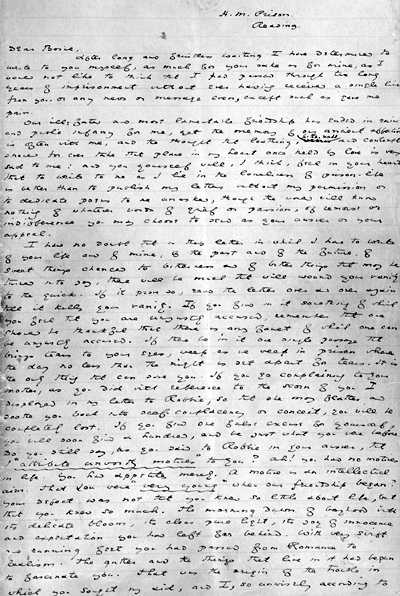 H. M. Prison
Reading.
Dear Bosie,
After long and fruitless waiting I have determined to
write to you myself, as much for your sake as for mine, as I
would not like to think that I had passed through two long
years of imprisonment without ever having received a single line
from you, or any news or message even, except such as gave me
pain.
Our ill-fated and most lamentable friendship has ended in ruin
and public infamy for me, yet the memory of our ancient affection
is often with me, and the thought that loathing, bitterness and contempt
should for ever take that place in my heart once held by love is very
sad to me: and you yourself will, I think, feel in your heart
that to write to me as I lie in the loneliness of prison-life
is better than to publish my letters without my permission or
to dedicate poems to me unasked, though the world will know
nothing of whatever words of grief or passion, of remorse or
indifference you may choose to send as your answer or your
appeal.
I have no doubt that in this letter in which I have to write
of your life and of mine, of the past and of the future, of
sweet things changed to bitterness and of bitter things that may be
turned into joy, there will be much that will wound your vanity
to the quick. If it prove so, read the letter over and over again
till it kills your vanity. If you find in it something of which
you feel that you are unjustly accused, remember that one
should be thankful that there is any fault of which one can
be unjustly accused. If there be in it one single passage that
brings tears to your eyes, weep as we weep in prison where
the day no less than the night is set apart for tears. It is
the only thing that can save you. If you go complaining to your
mother, as you did with reference to the scorn of you I
displayed in my letter to Robbie, so that she may flatter and
soothe you back into self-complacency or conceit, you will be
completely lost. If you find one false excuse for yourself,
you will soon find a hundred, and be just what you were before.
Do you still say, as you said to Robbie in your answer, that
I "attribute unworthy motives" to you? Ah! you had no motives
in life. You had appetites merely. A motive is an intellectual
aim. That you were "very young" when our friendship began?
Your defect was not that you knew so little about life, but
that you knew so much. The morning dawn of boyhood with
its delicate bloom, its clear pure light, its joy of innocence
and expectation you had left far behind. With very swift
and running feet you had passed from Romance to
Realism. The gutter and the things that live in it had begun
to fascinate you. That was the origin of the trouble in
which you sought my aid, and I, so unwisely according to